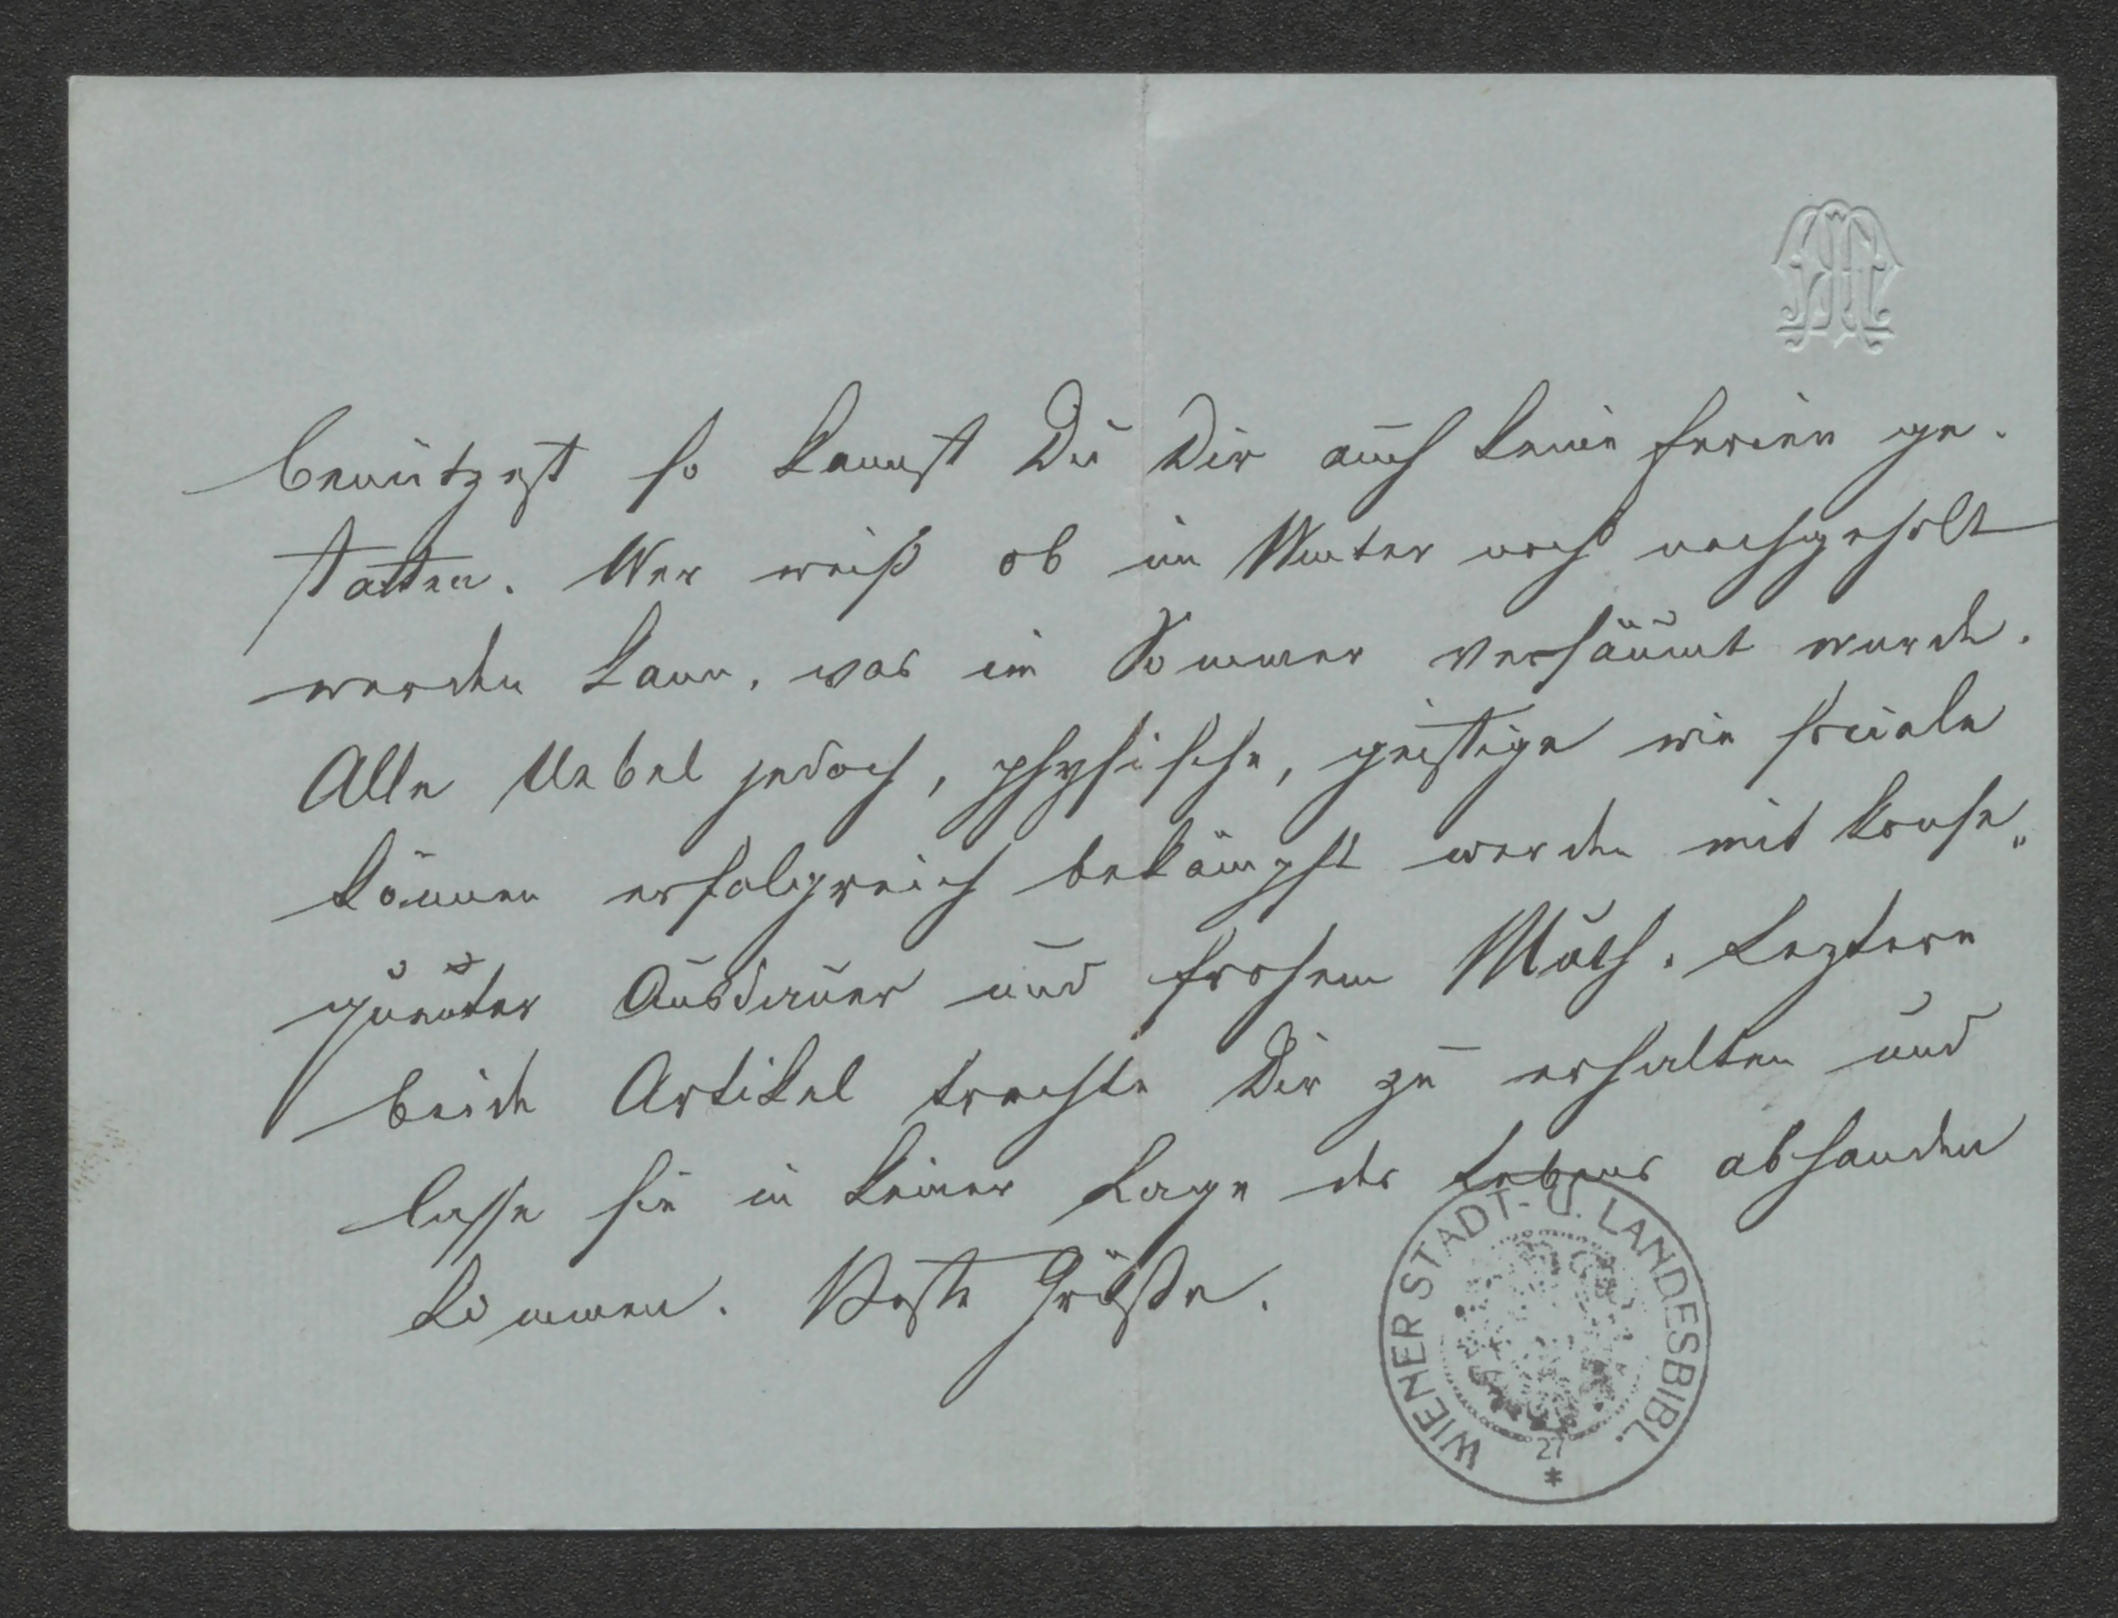 benützest so kannst Du Dir auch keine Ferien ge-
statten. Wer weiß ob im Winter noch nachgeholt
werden kann, was im Sommer versäumt wurde.
Alle Uebel jedoch, physische, geistige wie sociale
können erfolgreich bekämpft werden mit konse„
quenter Ausdauer und frohem Muth. Leztere
beide Artikel trachte Dir zu erhalten und
lasse sie in keiner Lage des Lebens abhanden
kommen. Beste Grüße.
WIENER STADT- U. LANDESBIBL.
27